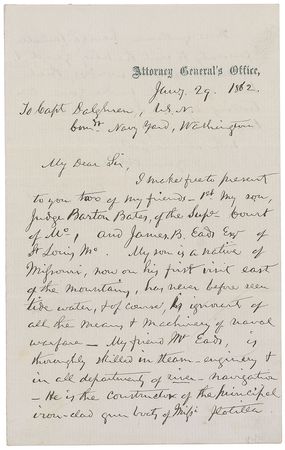 Attorney General's Office,
Jany. 29. 1862.
To Capt Dalghren, U.S.N.
Comdt Navy Yard, Washington
My Dear Sir,
I make free to present
to you two of my friends - 1st My son,
Judge Barton Bates, of the Supe. Court
of Mo, and James B. Eads Esqr of
St Louis Mo. My son is a native of
Missouri, now on his first visit east
of the Mountains, has never before seen
tide water, & of course, is ignorant of
all the means & machinery of naval
warfare - My friend Mr Eads, is
thoroughly skilled in steam-enginery &
in all department of river-navigation
- He is the constructor of the principal
iron-clad gun boats of Missi flotilla.